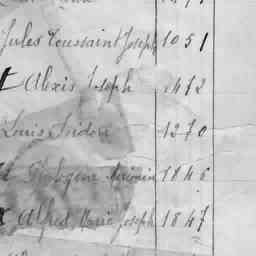 Jules Toussaint Joseph 1051
Alexis Joseph 1472
Louis Isidore 1270
1846
Alfred Marie Joseph 1847